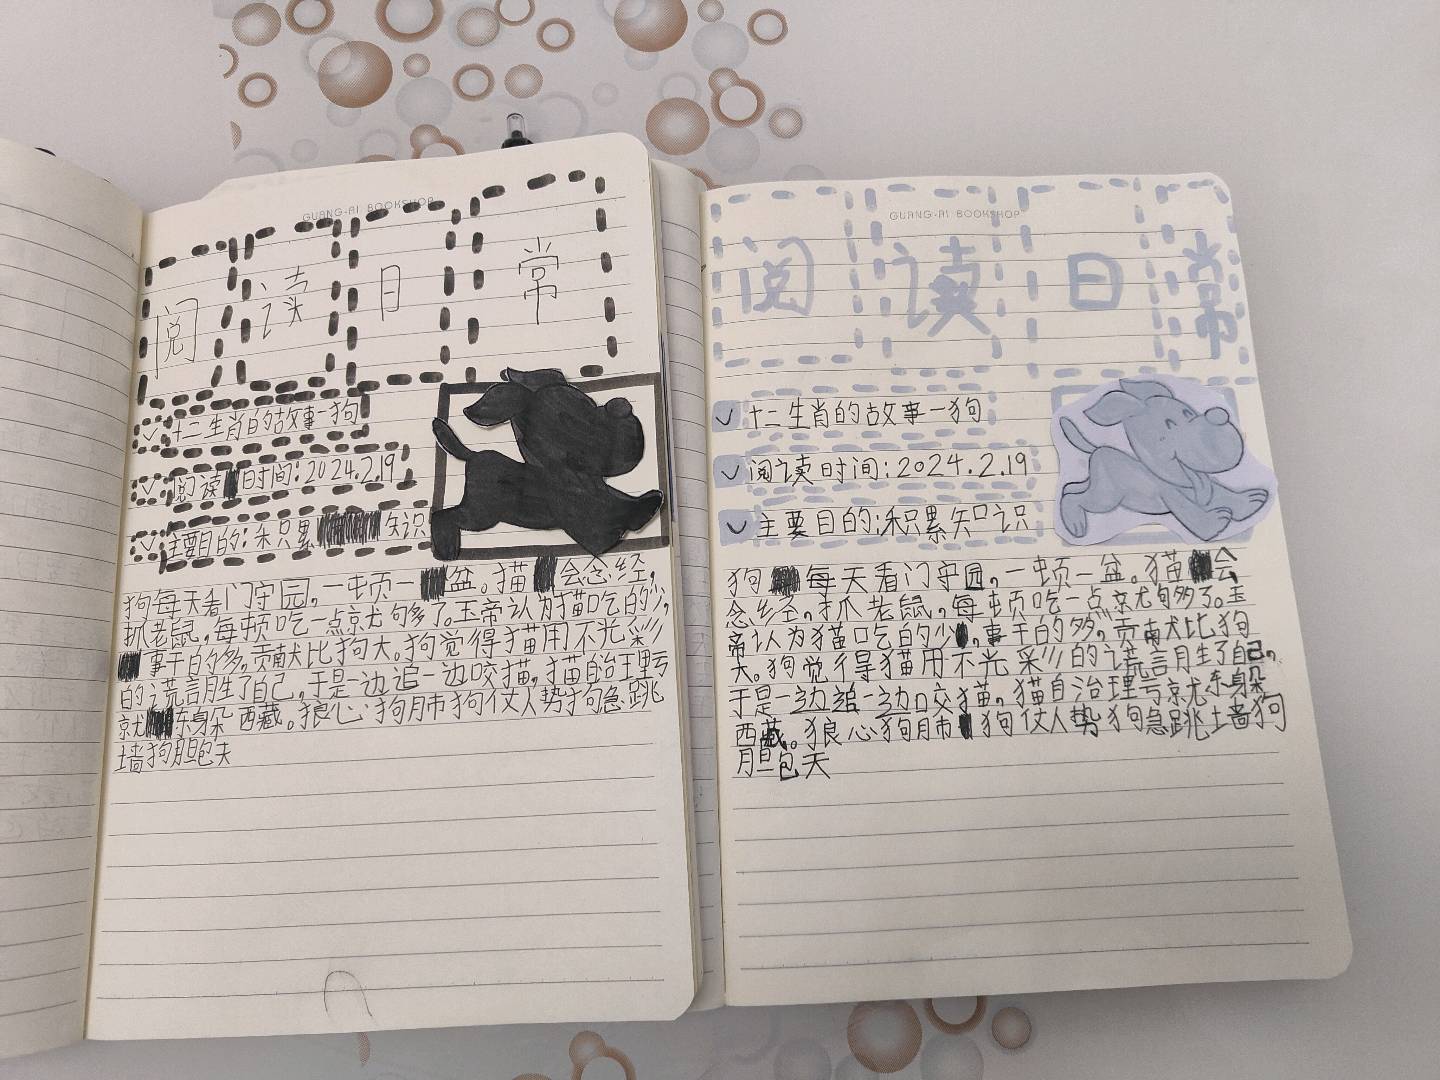 GUANG-AI BOOKSHOP
阅读日常
十二生肖的故事一狗
阅读时间:2024.2.19
主要目的:积累知识
狗每天看门守园,一顿一盆。猫会念经,
抓老鼠,每顿吃一点就够了。玉帝认为猫吃的少,
事干的多,贡献比狗大。狗觉得猫用不光彩
的谎言胜了自己,于是一边追一边咬猫,猫自治理亏
就东躲西藏。狼心狗肺狗仗人势狗急跳
墙狗胆包天
GUANG-AI BOOKSHOP
阅读日常
十二生肖的故事一狗
阅读时间:2024.2.19
主要目的:积累知识
狗每天看门守园,一顿一盆。猫会
念经,抓老鼠,每顿吃一点就够了。玉
帝认为猫吃的少,事干的多,贡献比狗
大。狗觉得猫用不光彩的谎言胜了自己,
于是一边追一边咬猫,猫自治理亏就东躲
西藏。狼心狗肺狗仗人势狗急跳墙狗
胆包天